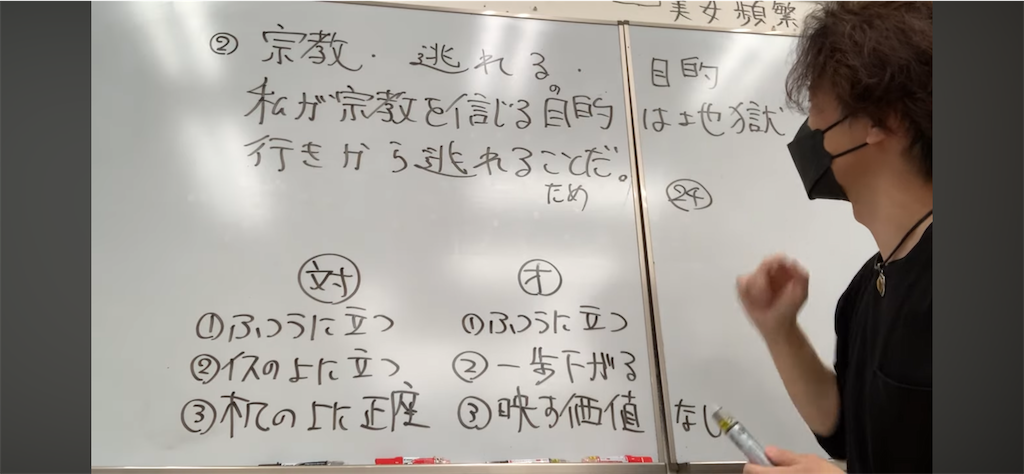 美女頻繁
② 宗教. 逃れる. 目的
私が宗教を信じる目的は地獄
行きから逃れることだ。
ため
㉔
対 オ
①ふつうに立つ ①ふつうに立つ
②イスの上に立つ ②一歩下がる
③机の上に正座 ③映す価値なし